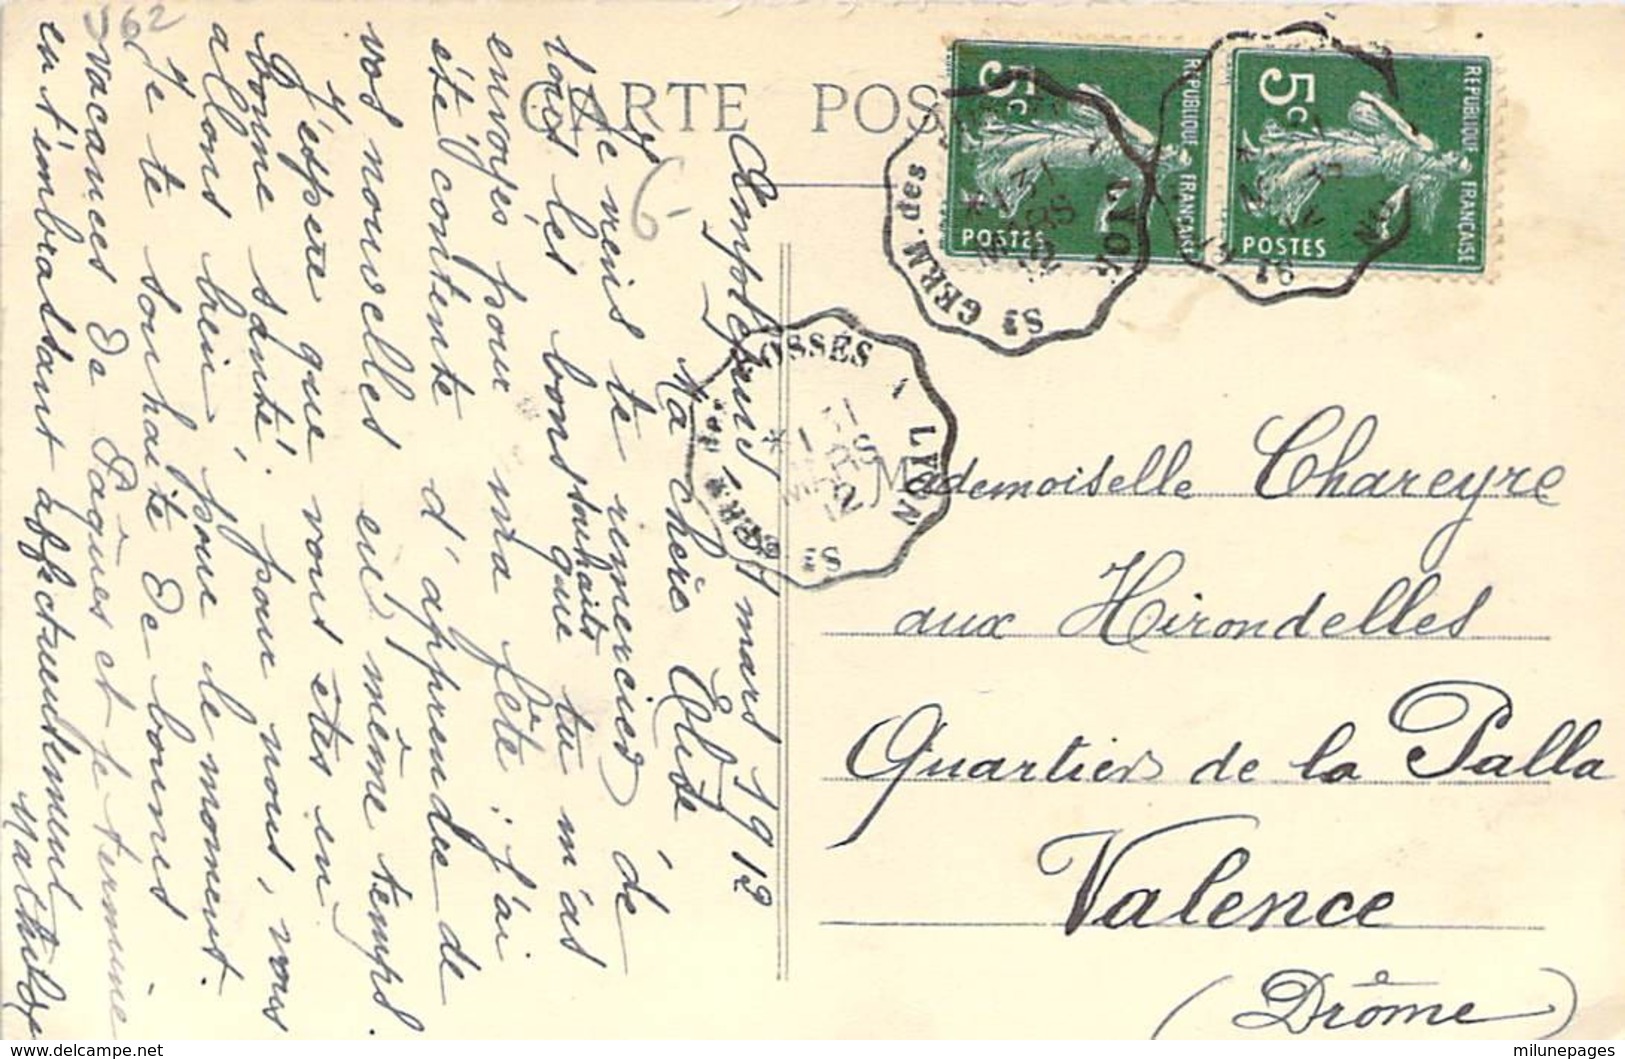 J62
CARTE POS
6-
Amplepuis, 31 mars 1912
Ma chère Elise
Je viens te remercier de
tous les bons souhaits que tu m'as
envoyés pour ma fête ; j'ai
été contente d'apprendre de
vos nouvelles en même temps.
J'espère que vous êtes en
bonne santé ; pour nous, nous
allons bien pour le moment.
Je te souhaite de bonnes
vacances de Pâques et je termine
en t'embrassant affectueusement
Mathilde
5c
REPUBLIQUE FRANÇAISE
POSTES
5c
REPUBLIQUE FRANÇAISE
POSTES
St GERM. des FOSSÉS A LYON
31 MARS 12
FOSSÉS A LYON
31 MARS 12
Mademoiselle Chareyre
aux Hirondelles
Quartier de la Palla
Valence
(Drôme)
www.delcampe.net
milunepages